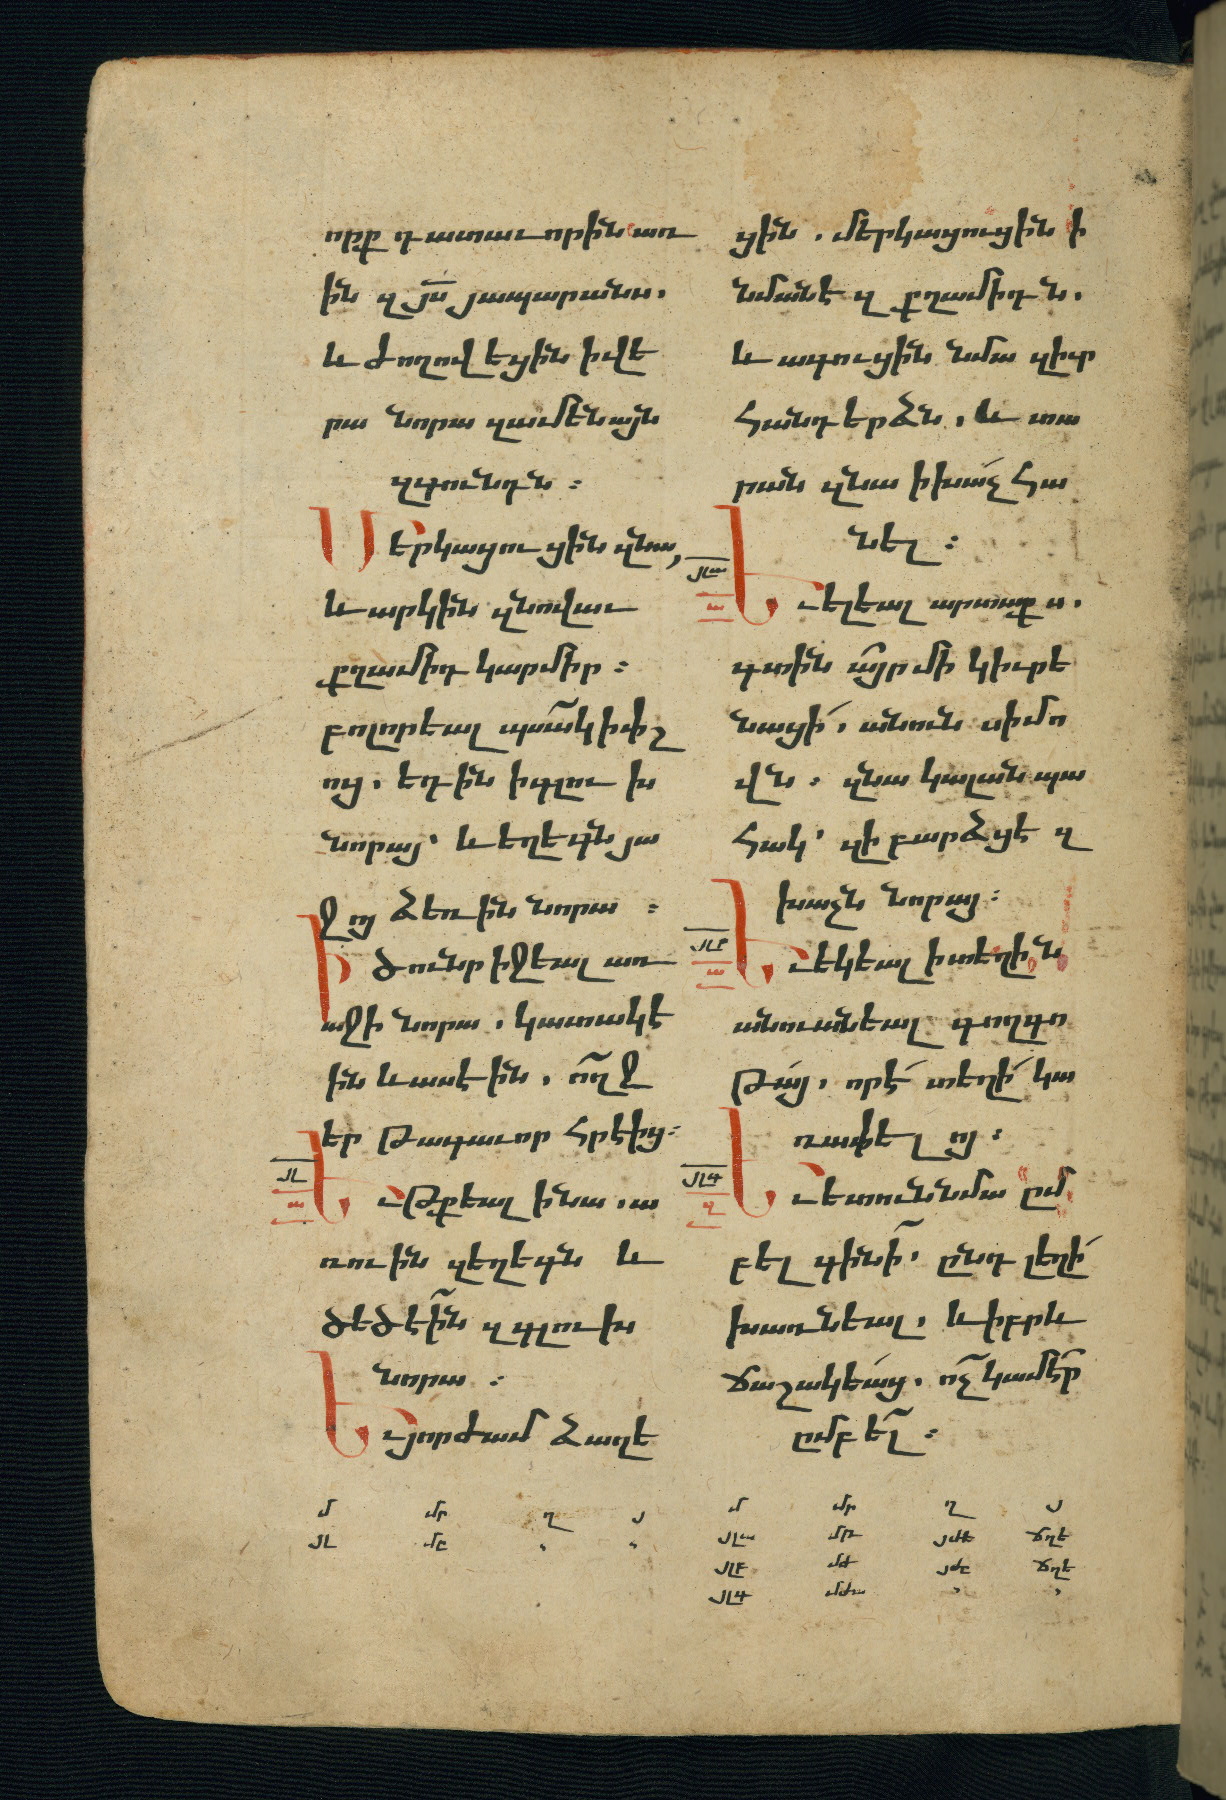 որք դատաւորին առ
ին զյս̅ յապարանս.
և ժողովեցին ի վե
րա նորա զամենայն
զգունդն :
Մերկացուցին զնա,
և արկին զնովաւ
քղամիդ կարմիր :
բոլորեալ պսակ ի փշ
ոյ. եդին ի գլուխ
նորայ՝ և եղեգն յա
ջոյ ձեռին նորա :
Ի ծունր իջեալ առ
աջի նորա. կատակէ
ին և ասէին. ո՜ղջ
եր թագաւոր հրէից:
Եւ թքեալ ի նա. ա
ռուին զեղեգն և
ծեծէին զգլուխ
նորա :
Եւ յորժամ ձաղե
ցին. մերկացուցին ի
նմանէ զքղամիդն.
և ագուցին նմա զիւր
հանդերձն. և տա
րան զնա ի խաչ հա
նել :
Եւ ելեալ արտաքս.
գտին այր մի կիւրե
նացի. անուն սիմո
վն. զնա կալան պա
հակ՝ զի բարձցէ զ
խաչն նորայ:
Եւ եկեալ ի տեղին
անուանեալ գողգո
թայ. որ է տեղի կա
ռափելոյ :
Ետուն նմա ըմ
բել գինի. ընդ լեղի
խառնեալ. և իբրև
ճաշակեաց. ոչ կամէր
ըմբել :
յլ
ա
յլա
ա
յլբ
ա
յլգ
մ մր ղ յ
յլ մը
մ մր ղ յ
յլա մթ յժե ճղե
յլբ մժ յժը ճղե
յլգ մժա